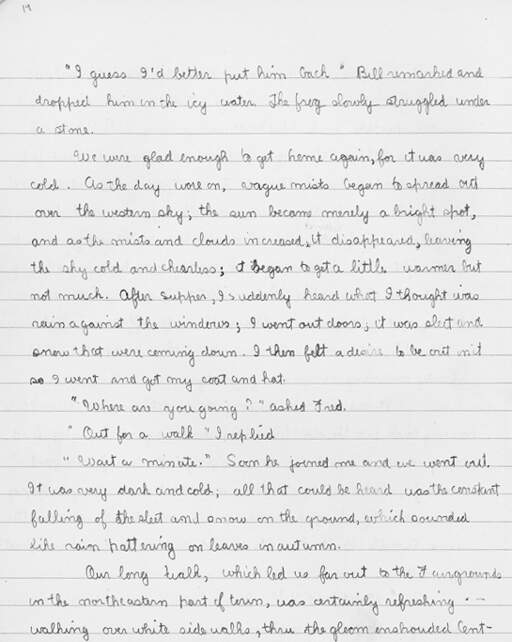 19
"I guess I'd better put him back" Bill remarked and
dropped him in the icy water. The frog slowly struggled under
a stone.
We were glad enough to get home again, for it was very
cold. As the day wore on, vague mists began to spread out
over the western sky; the sun became merely a bright spot,
and as the mists and clouds increased, it disappeared, leaving
the sky cold and cheerless; it began to get a little warmer but
not much. After supper, I suddenly heard what I thought was
rain against the windows; I went out doors; it was sleet and
snow that were coming down. I then felt a desire to be out in it
so I went and got my coat and hat.
"Where are you going?" asked Fred.
"Out for a walk" I replied
"Wait a minute." Soon he joined me and we went out.
It was very dark and cold; all that could be heard was the constant
falling of the sleet and snow on the ground, which sounded
like rain pattering on leaves in autumn.
Our long walk, which led us far out to the Fairgrounds
in the northeastern part of town, was certainly refreshing --
walking over white side walks, thru the gloom enshrouded Cent-